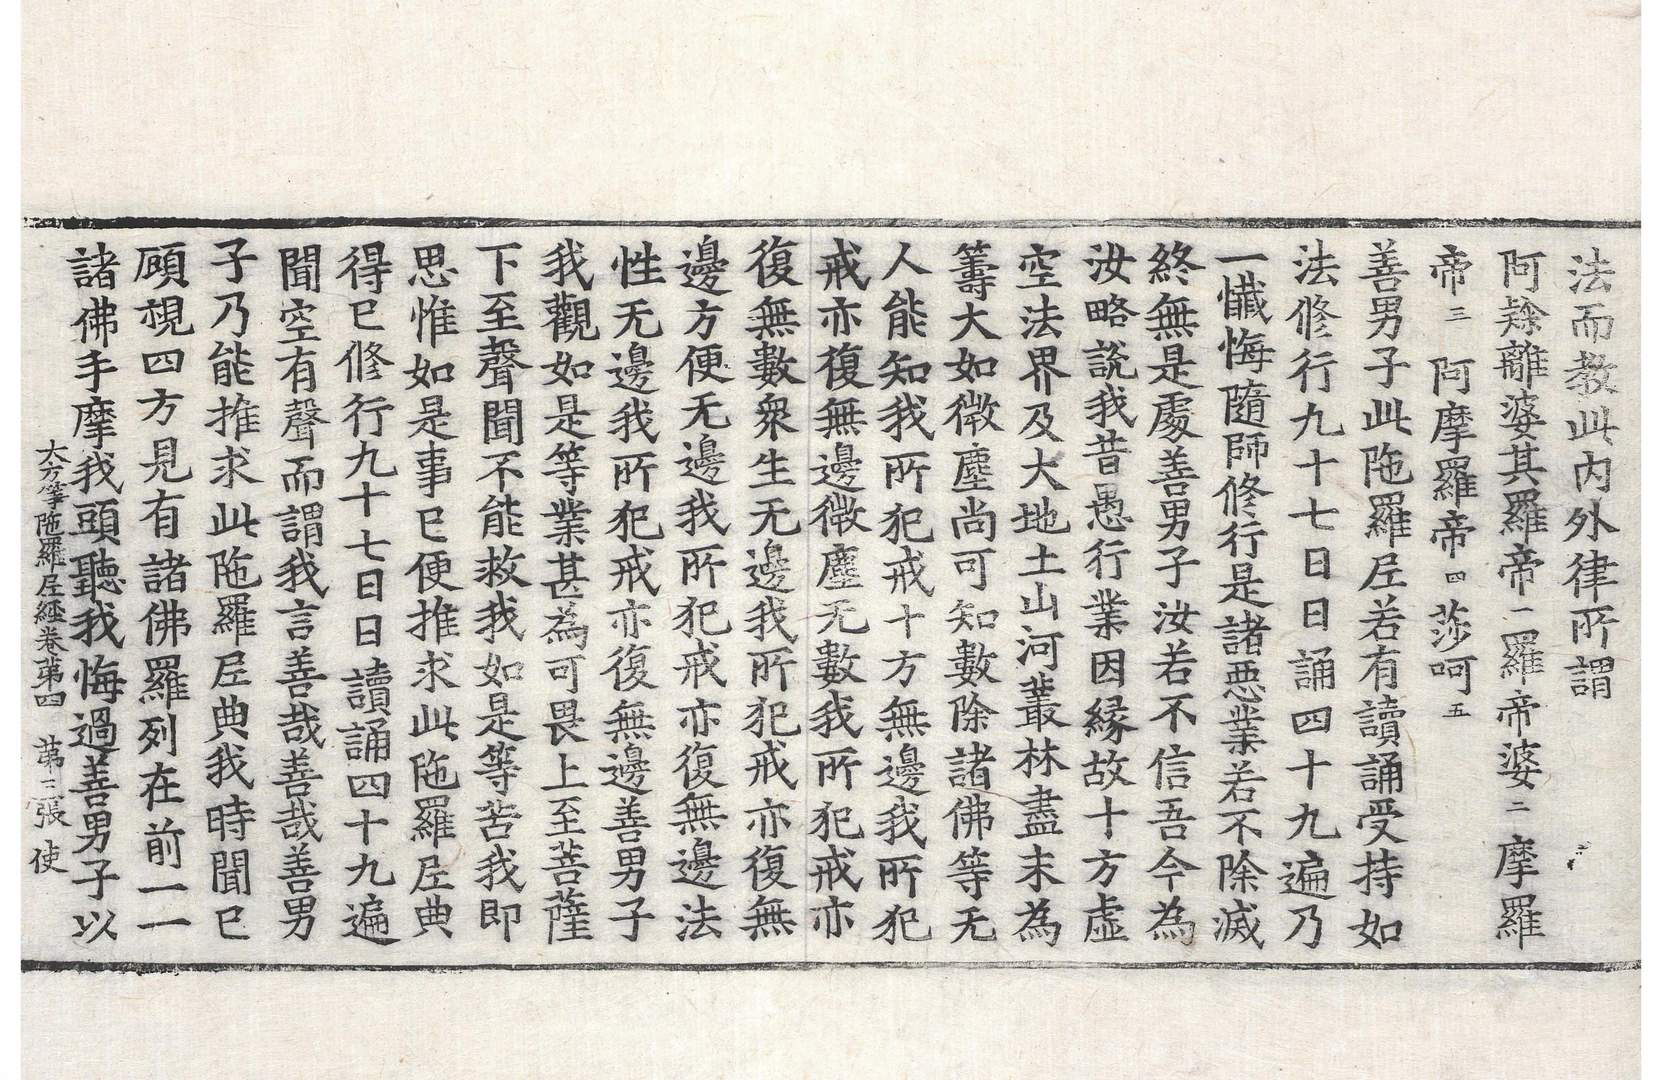 法而教此内外律所謂
阿䟂離婆其羅帝一羅帝婆二摩羅
帝三 阿摩羅帝四莎呵五
善男子此陁羅𡰱若有讀誦受持如
法修行九十七日日誦四十九遍乃
一懺悔隨師修行是諸惡業若不除滅
終無是處善男子汝若不信吾今為
汝略說我昔愚行業因縁故十方虛
空法界及大地土山河叢林盡末為
籌大如微塵尚可知數除諸佛等无
人能知我所犯戒十方無邊我所犯
戒亦復無邊微塵无數我所犯戒亦
復無數衆生无邊我所犯戒亦復無
邊方便无邊我所犯戒亦復無邊法
性无邊我所犯戒亦復無邊善男子
我觀如是等業甚為可畏上至菩薩
下至聲聞不能救我如是等苦我即
思惟如是事已便推求此陁羅𡰱典
得已修行九十七日日讀誦四十九遍
聞空有聲而謂我言善哉善哉善男
子乃能推求此陁羅𡰱典我時聞已
顧視四方見有諸佛羅列在前一一
諸佛手摩我頭聽我悔過善男子以
大方等陁羅𡰱經卷第四 第三張 使